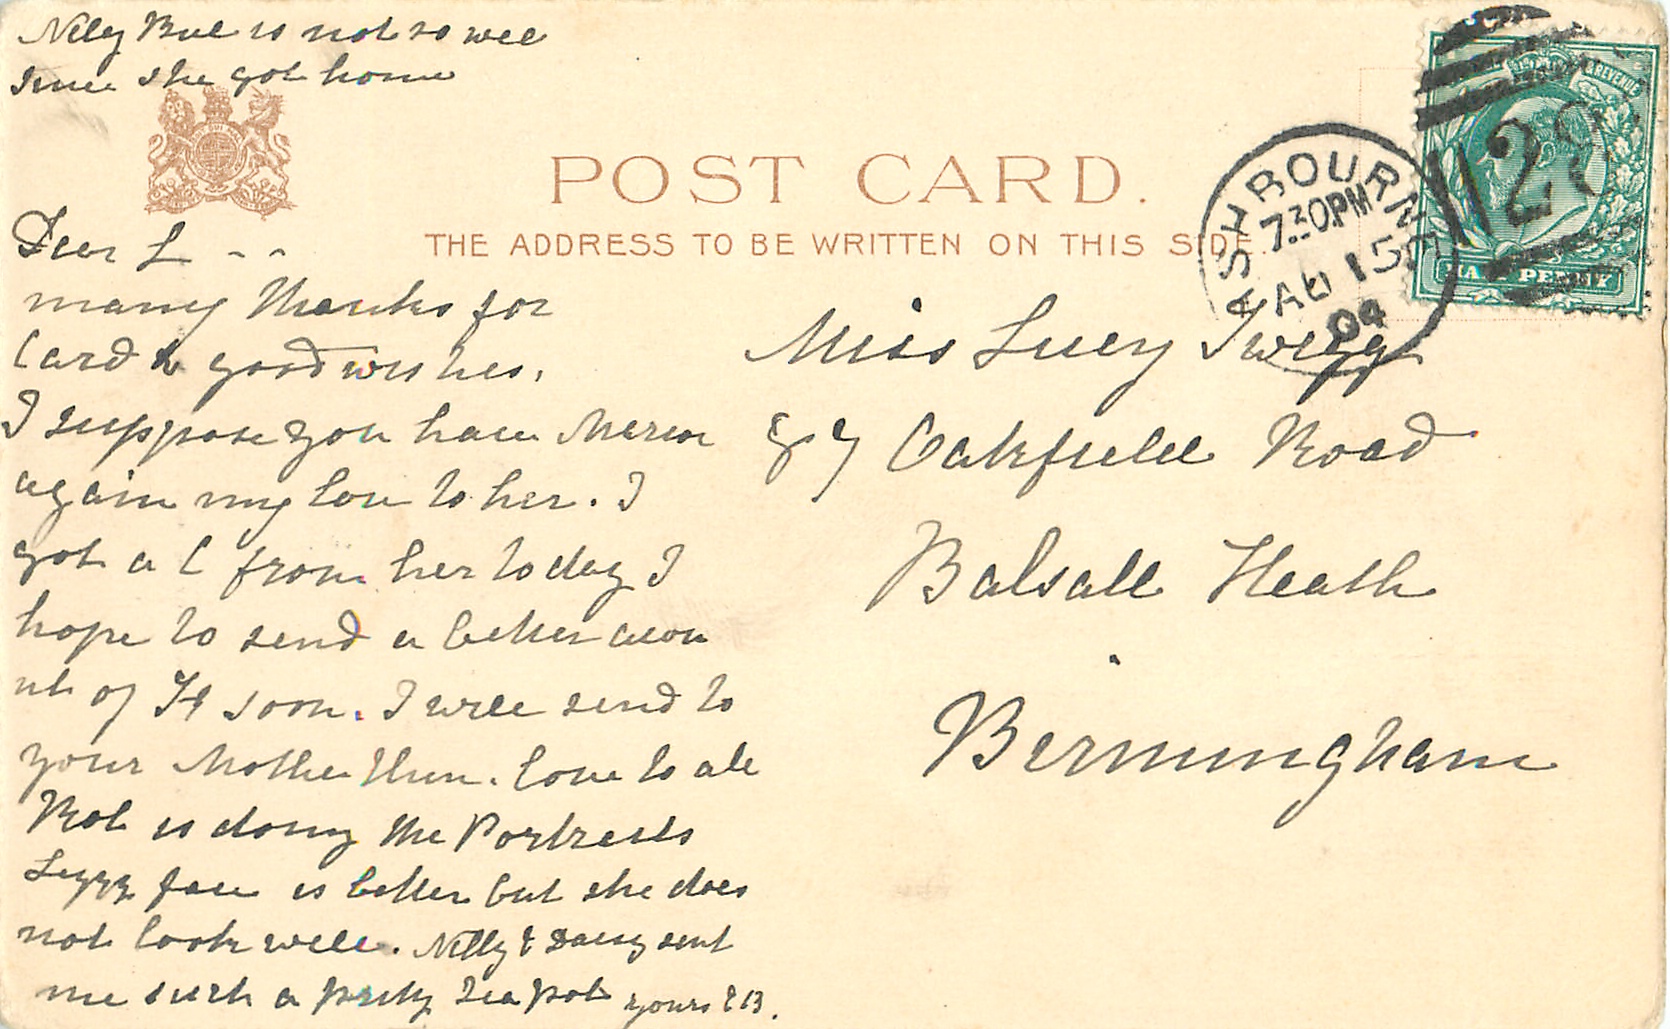 Nelly Bul is not so well
since she got home
POST CARD.
THE ADDRESS TO BE WRITTEN ON THIS SIDE.
ASHBOURNE
7.30PM
AU 15
04
129
REVENUE
HALF PENNY
Dear L - -
many thanks for
Card & good wishes.
I suppose you have Marion
again my love to her. I
got a L from her today I
hope to send a better accou
nt of soon. I will send to
your Mother then. love to all
Rob is doing the Portraits
face is better but she does
not look well. Nelly & Daisy sent
me such a pretty Tea pot yours EB.
Miss Lucy Twigg
87 Oakfield Road
Balsall Heath
Birmingham